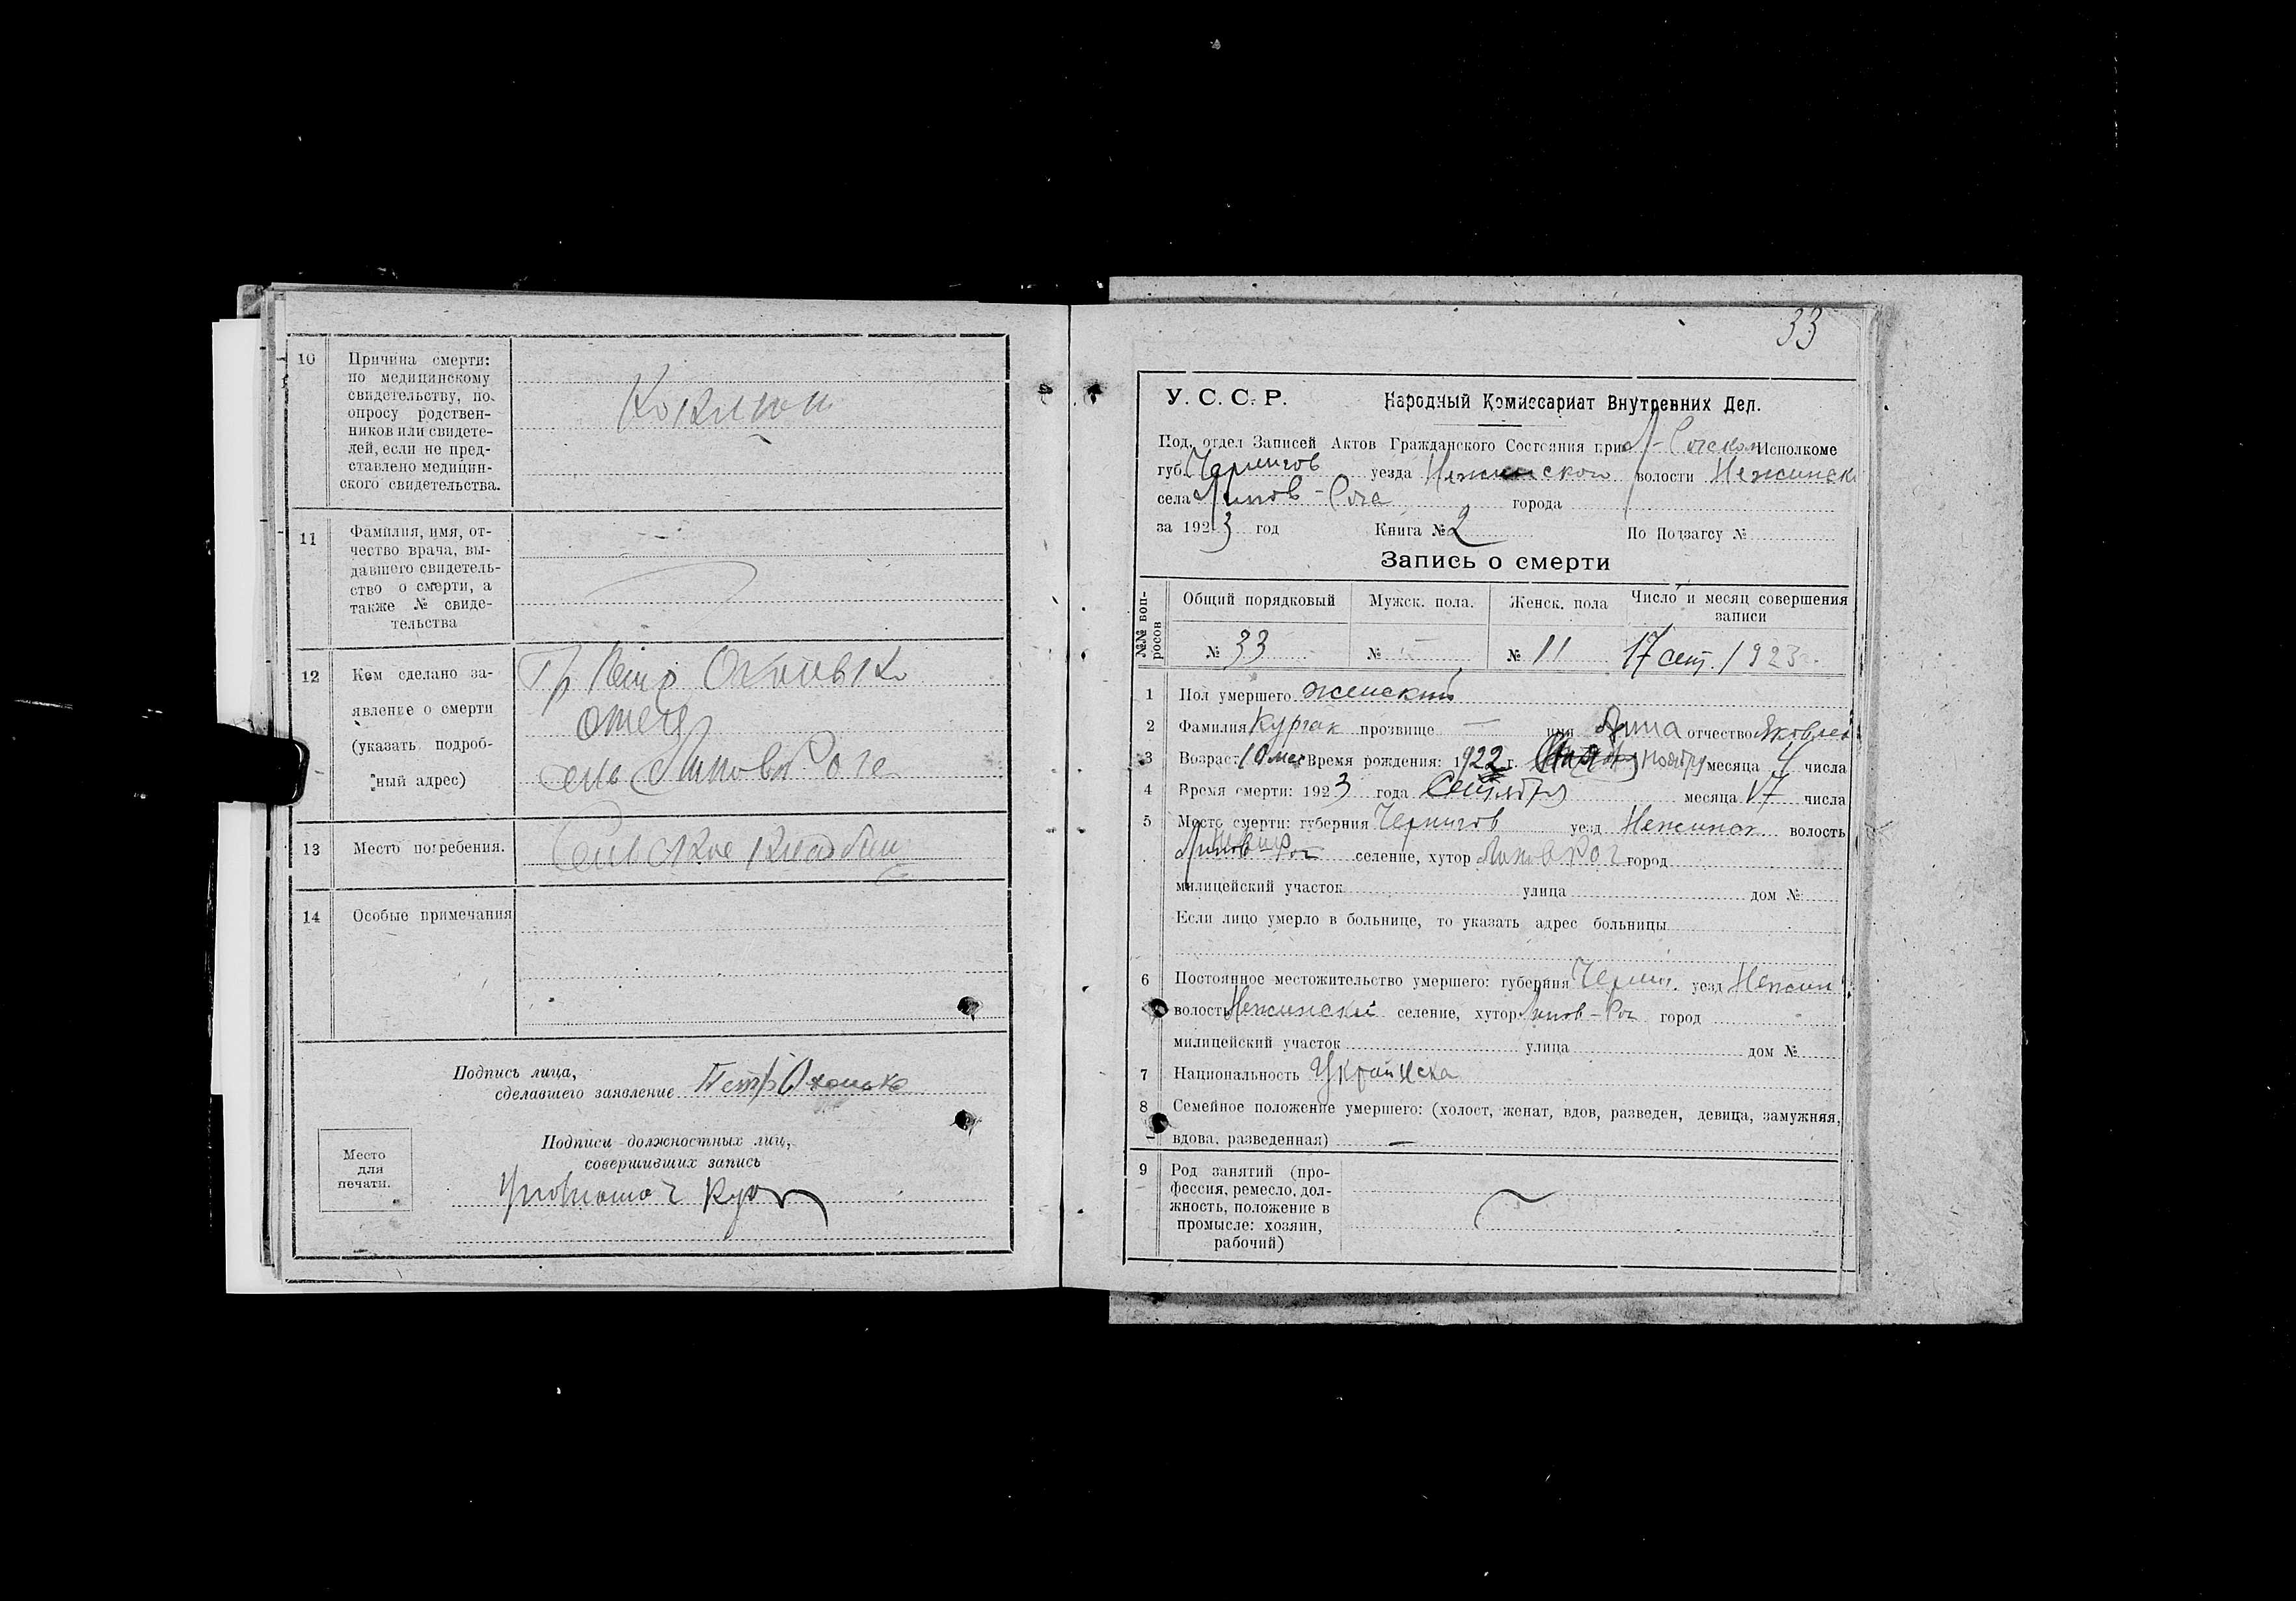 10 Причина смерти:
по медицинскому
свидетельству, по
опросу родствен-
ников или свидете-
лей, если не пред-
ставлено медицин-
ского свидетельства.
Коклюш
11 Фамилия, имя, от-
чество врача, вы-
давшего свидетель-
ство о смерти, а
также № свиде-
тельства
12 Кем сделано за-
явление о смерти
(указать подроб-
ный адрес)
Гр Петр
отец
13 Место погребения.
Сельское кладбищ
14 Особые примечания
Подпись лица,
сделавшего заявление Петр
Подписи должностных лиц,
совершивших запись
Место
для
печати.
33
У. С. С. Р. Народный Комиссариат Внутренних Дел.
Под. отдел Записей Актов Гражданского Состояния при Исполкоме
губ. Чернигов уезда Нежинской волости Нежинск
села Липов-Рога города
за 1923 год Книга № 2 По Подзагсу №
Запись о смерти
№№ воп-
росов
Общий порядковый Мужск. пола. Женск. пола Число и месяц совершения
записи
№ 33 № - № 11 17 сент. 1923 г.
1 Пол умершего женский
2 Фамилия Кургак прозвище — имя Анна отчество Яковлев
3 Возраст 10 мес Время рождения: 1922 г. ноября месяца 4 числа
4 Время смерти: 1923 года Сентября месяца 17 числа
5 Место смерти: губерния Чернигов уезд Нежинск волость
Липов-Рог селение, хутор Липов Рог город
милицейский участок улица дом №
Если лицо умерло в больнице, то указать адрес больницы
6 Постоянное местожительство умершего: губерния Черниг. уезд Нежин
волость Нежинской селение, хутор Липов-Рог город
милицейский участок улица дом №
7 Национальность Українска
8 Семейное положение умершего: (холост, женат, вдов, разведен, девица, замужняя,
вдова, разведенная) —
9 Род занятий (про-
фессия, ремесло, дол-
жность, положение в
промысле: хозяин,
рабочий)